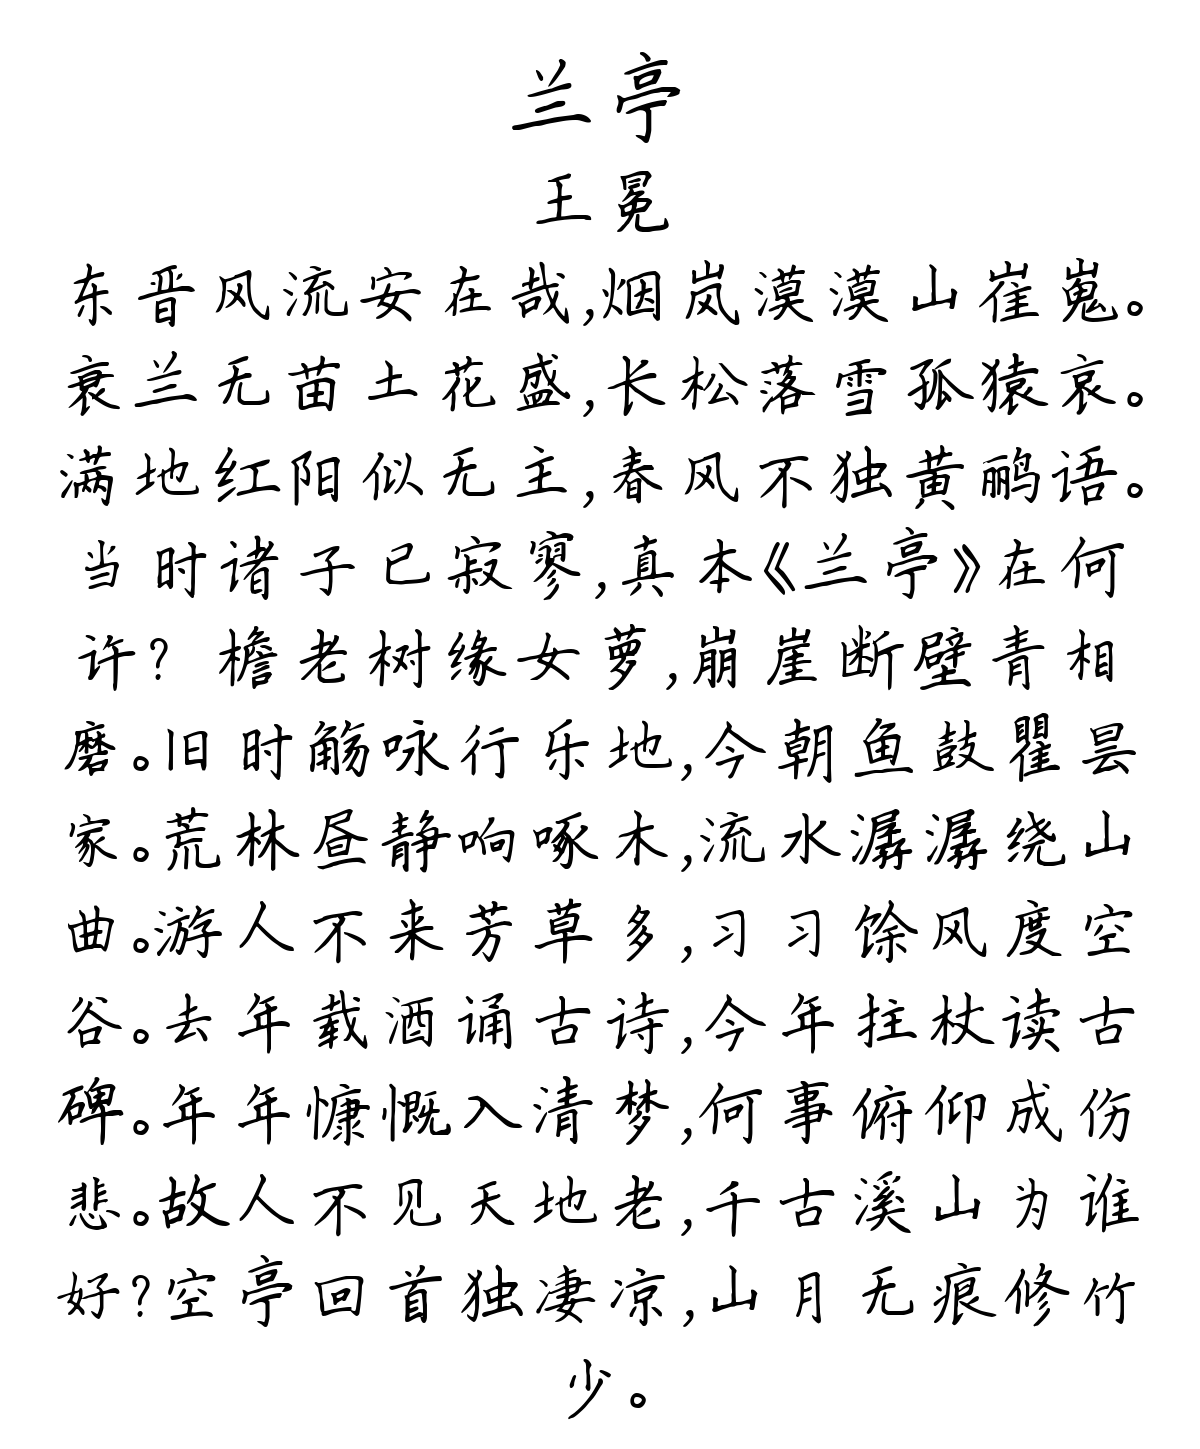 兰亭
王冕
东晋风流安在哉,烟岚漠漠山崔嵬。
衰兰无苗土花盛,长松落雪孤猿哀。
满地红阳似无主,春风不独黄鹂语。
当时诸子已寂寥,真本《兰亭》在何
许？檐老树缘女萝,崩崖断壁青相
磨。旧时觞咏行乐地,今朝鱼鼓瞿昙
家。荒林昼静响啄木,流水潺潺绕山
曲。游人不来芳草多,习习馀风度空
谷。去年载酒诵古诗,今年拄杖读古
碑。年年慷慨入清梦,何事俯仰成伤
悲。故人不见天地老,千古溪山为谁
好？空亭回首独凄凉,山月无痕修竹
少。